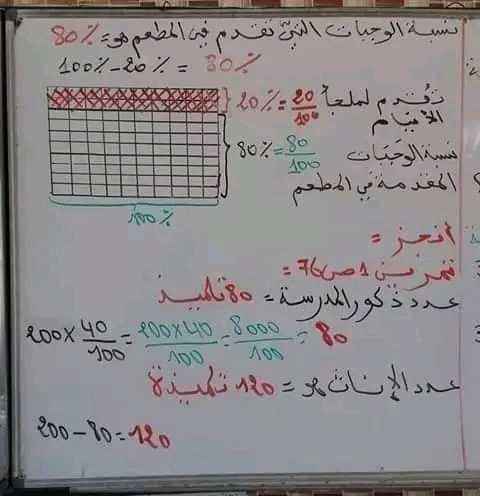 نسبة الوجبات التي تقدم في المطعم هو = 80%
100% - 20% = 80%
تقدم لملجأ الأيتام
20% = 20/100
نسبة الوجبات المقدمة في المطعم
80% = 80/100
100%
أنجز =
تمرين 1 ص 76 =
عدد ذكور المدرسة = 80 تلميذ
200 × 40/100 = 200×40/100 = 8000/100 = 80
عدد الإناث هو = 120 تلميذة
200 - 80 = 120